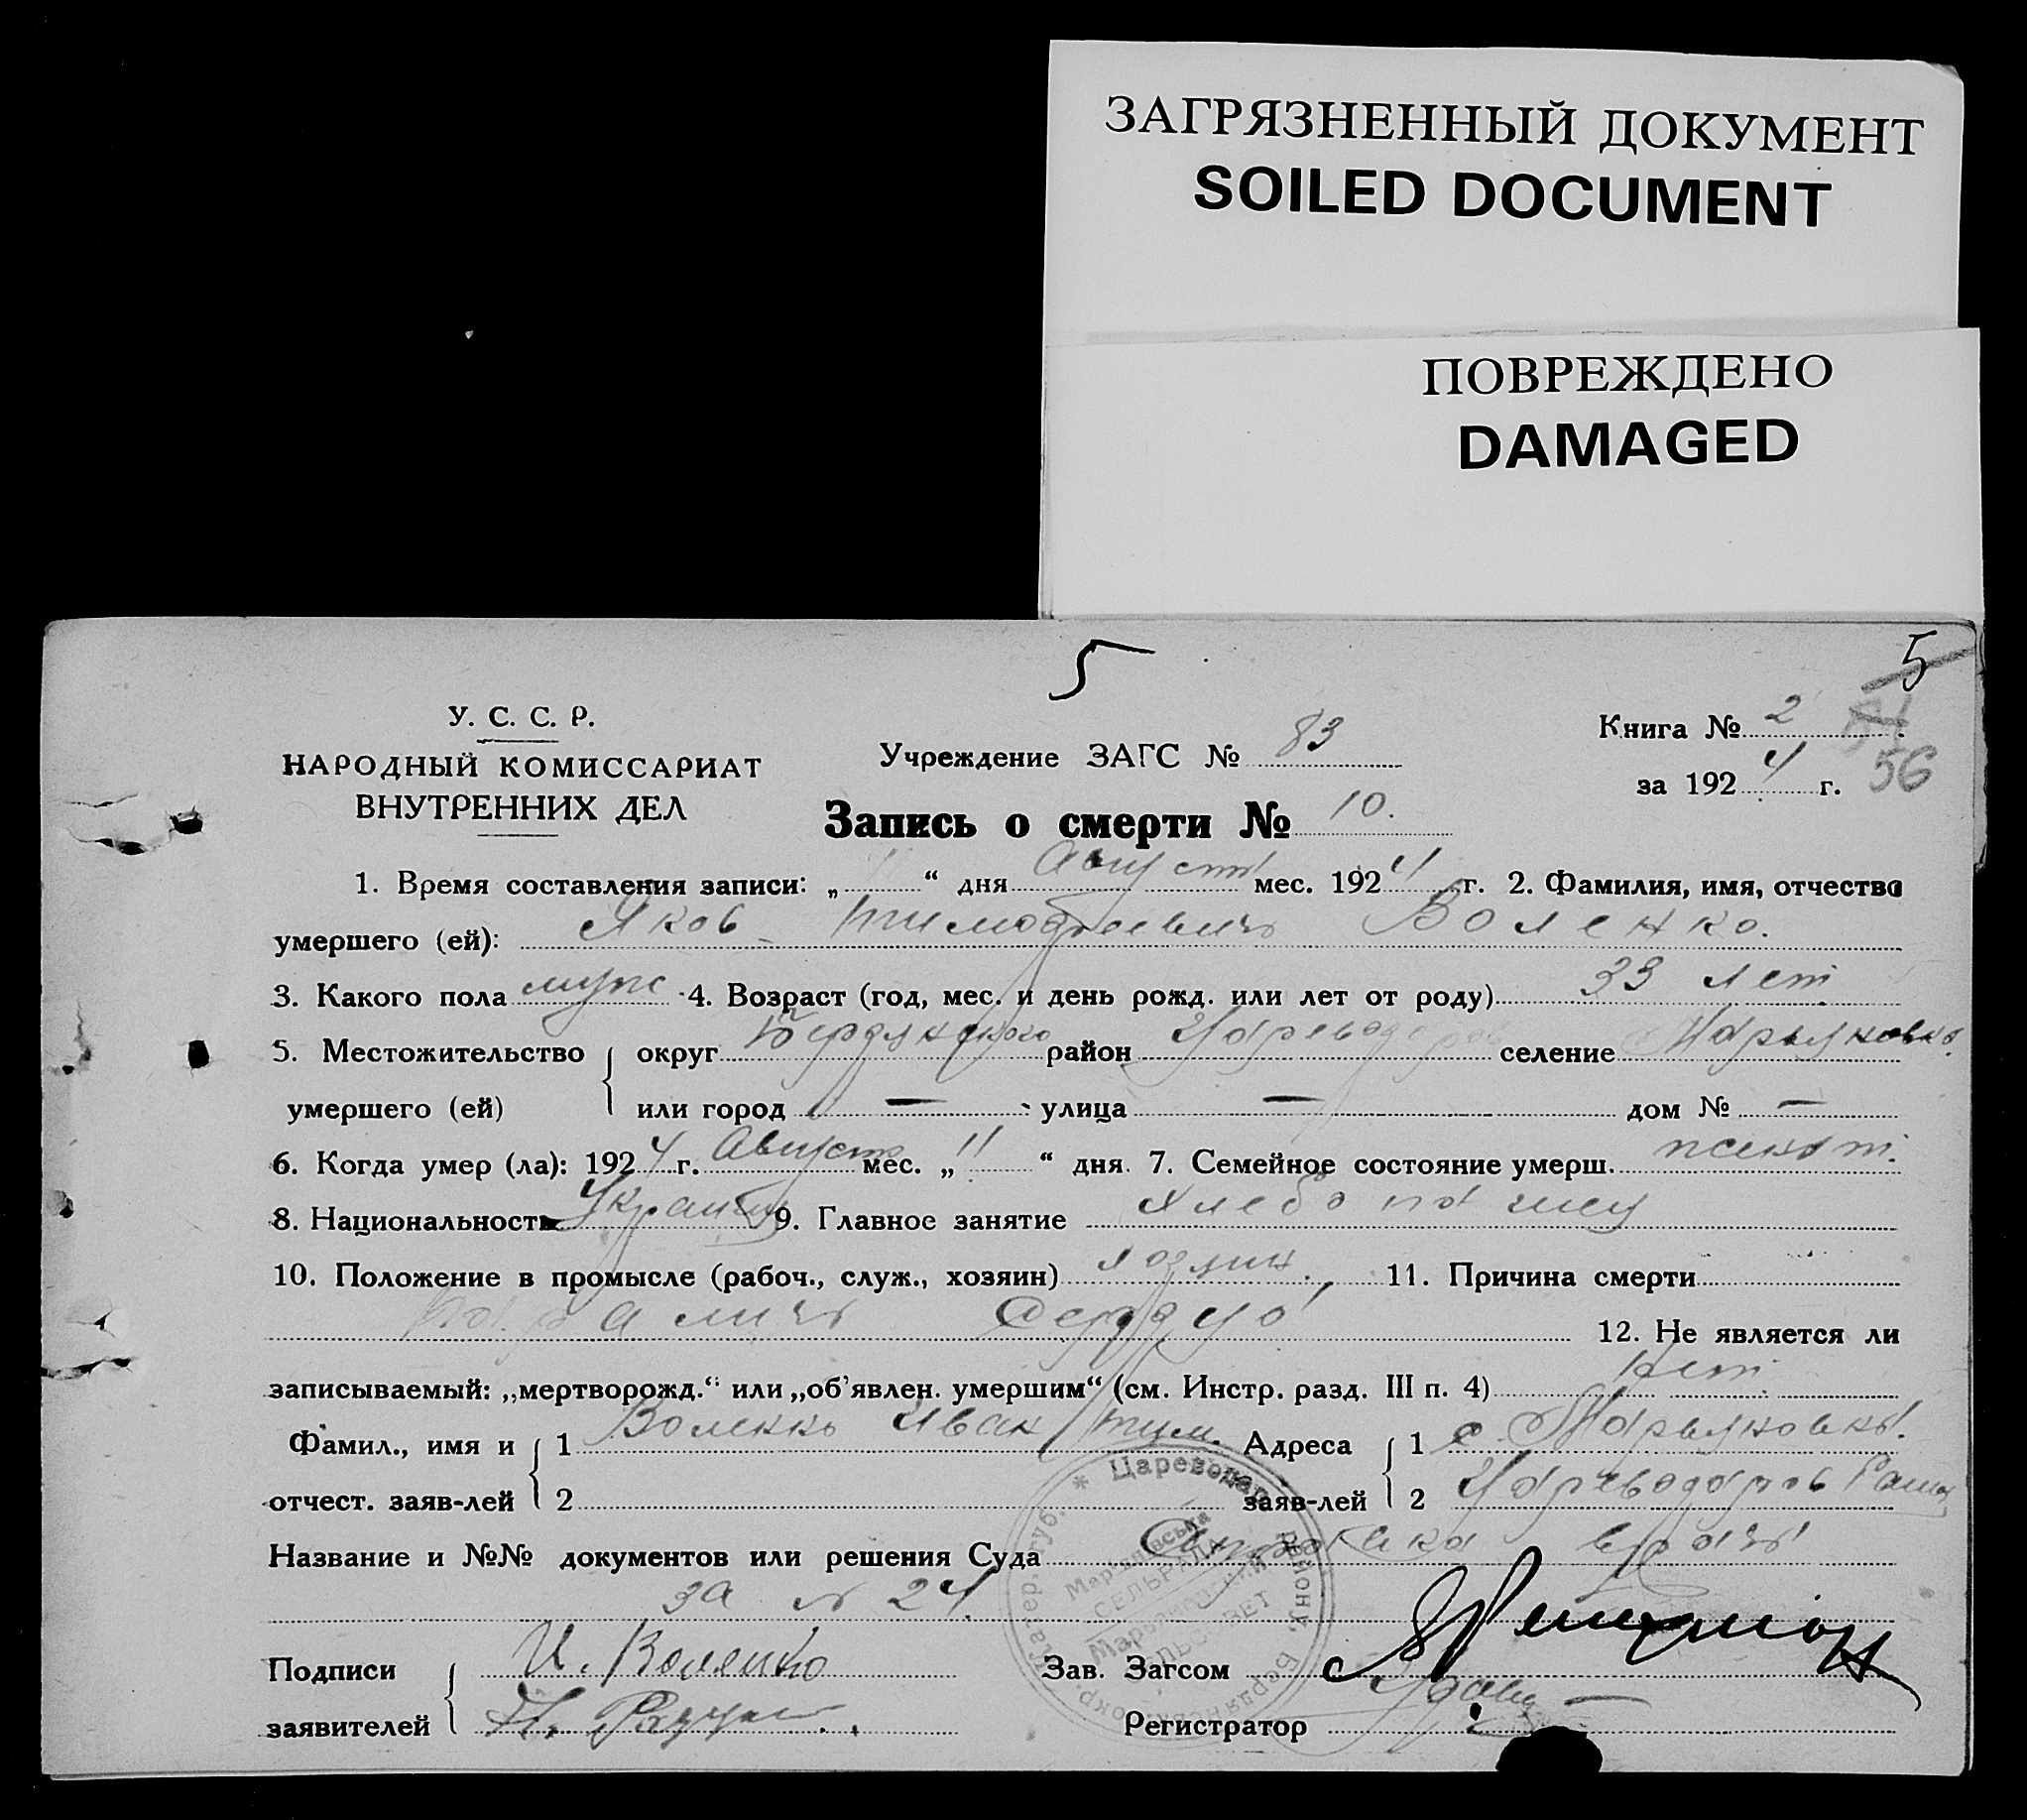 ЗАГРЯЗНЕННЫЙ ДОКУМЕНТ
SOILED DOCUMENT
ПОВРЕЖДЕНО
DAMAGED
5 5
У. С. С. Р.
НАРОДНЫЙ КОМИССАРИАТ
ВНУТРЕННИХ ДЕЛ
Учреждение ЗАГС № 83
Книга № 2
за 1924 г. 56
Запись о смерти № 10.
1. Время составления записи: „ “ дня Август мес. 1924 г. 2. Фамилия, имя, отчество
умершего (ей): Яков Тимофеевичъ Воленко.
3. Какого пола муж 4. Возраст (год, мес. и день рожд. или лет от роду) 33 лет
5. Местожительство округ Бердянского район Цареводаров селение Марьяновка.
умершего (ей) или город — улица — дом № —
6. Когда умер (ла): 1924 г. Август мес. „11“ дня. 7. Семейное состояние умерш.
8. Национальность 9. Главное занятие
10. Положение в промысле (рабоч., служ., хозяин) хозяин. 11. Причина смерти
12. Не является ли
записываемый: „мертворожд.“ или „об’явлен. умершим“ (см. Инстр. разд. III п. 4) Нет.
Фамил., имя и 1 Воленко Иван Тим. Адреса 1 с. Марьяновка.
отчест. заяв-лей 2 заяв-лей 2 Цареводаров
Название и №№ документов или решения Суда врачъ
за № 24.
Подписи И. Воленко Зав. Загсом
заявителей Регистратор
* Цареводар району, Бердянськ. окр. Катер. губ.
Мар'янівська
СЕЛЬРАДА
Марьяновский
СЕЛЬСОВЕТ